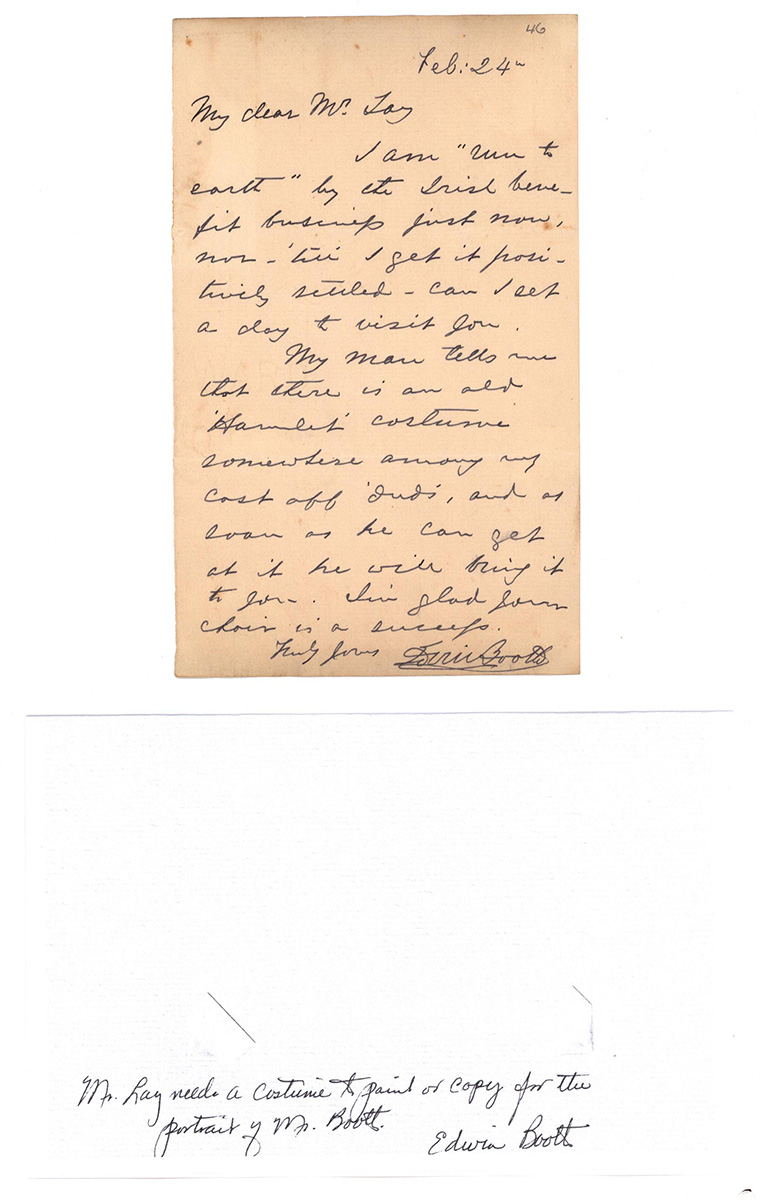 46
Feb: 24th
My dear Mr. Lay
I am "run to
earth" by the Irish bene-
fit business just now,
nor - 'till I get it posi-
tively settled - can I set
a day to visit you.
My man tells me
that there is an old
'Hamlet' costume
somewhere among my
cast off 'duds', and as
soon as he can get
at it he will bring it
to you. I'm glad your
choir is a success.
Truly yours Edwin Booth
Mr. Lay needs a costume to paint or copy for the
portrait of Mr. Booth.
Edwin Booth